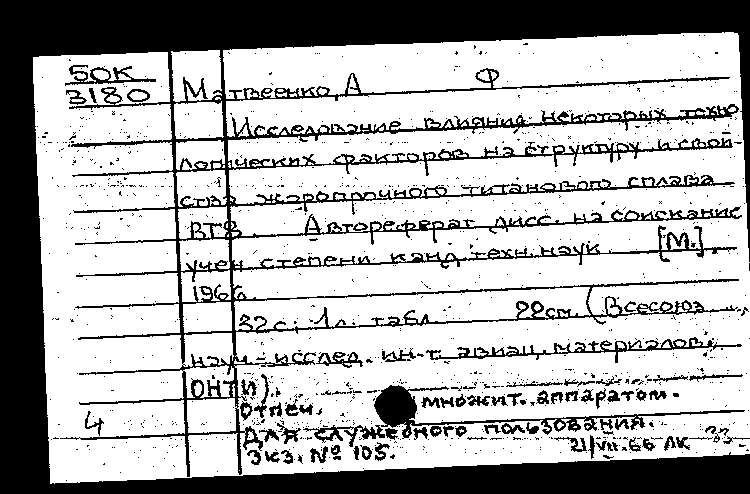 50К
3180
Матвеенко, А Ф
Исследование влияния некоторых техно
логических факторов на структуру и свой-
ства жаропрочного титанового сплава
ВТ8. Автореферат дисс. на соискание
учен. степени канд. техн. наук [М.],
1966.
32 с; 1 л. табл 22см. (Всесоюз.
науч-исслед. ин-т. авиац. материалов.
ОНТИ).
Отпеч. множит. аппаратом.
4
Для служебного пользования.
Экз. № 105. 21/VII.66 ЛК 33